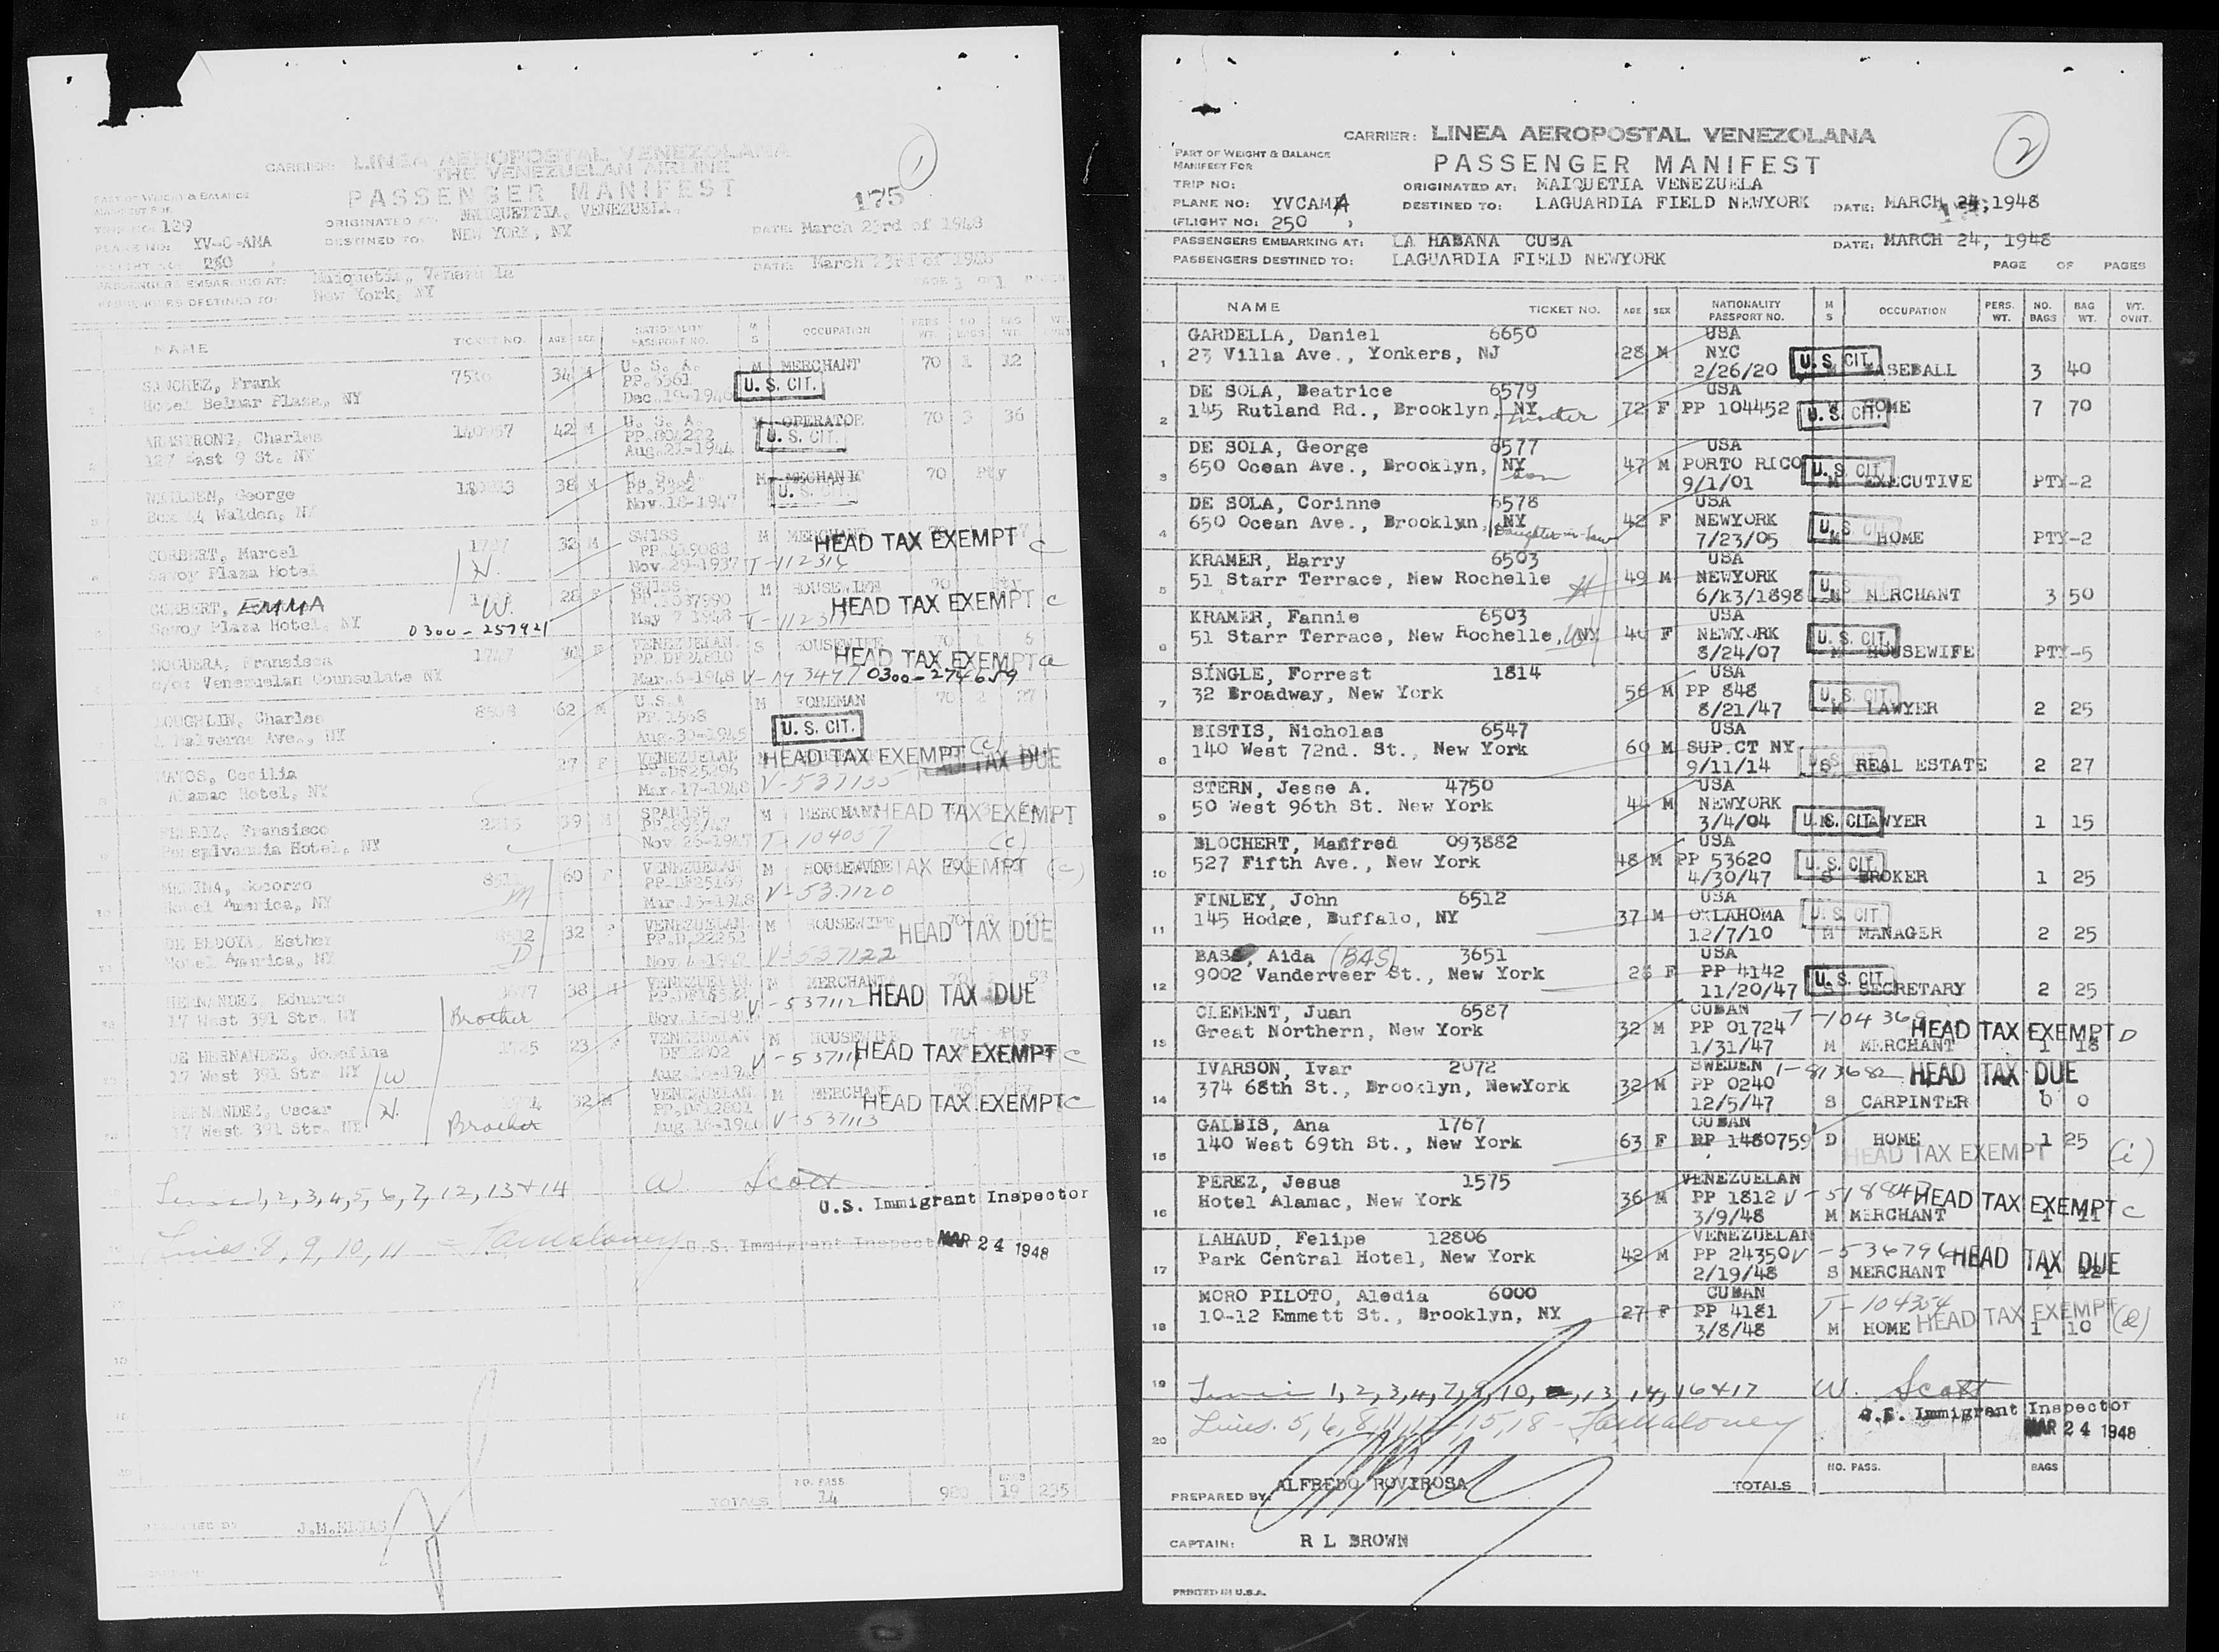 1
CARRIER: LINEA AEROPOSTAL VENEZOLANA
THE VENEZUELAN AIRLINE
PART OF WEIGHT & BALANCE
MANIFEST FOR
PASSENGER MANIFEST
175
TRIP NO: 129
ORIGINATED AT: MAIQUETTIA, VENEZUELA,
PLANE NO: YV-C-AMA
DESTINED TO: NEW YORK, NY
DATE: March 23rd of 1948
FLIGHT NO: 250
PASSENGERS EMBARKING AT: Maiquetia, Venezuela
DATE: March 23rd of 1948
PASSENGERS DESTINED TO: New York, NY
PAGE 1 OF 1
NAME TICKET NO. AGE SEX NATIONALITY PASSPORT NO. M S OCCUPATION PERS. WT. NO. BAGS BAG WT.
SANCHEZ, Frank 34 M U. S. A. M MERCHANT 70 1 12
Hotel Belmar Plaza, NY PP.5361 U. S. CIT.
Dec.19-1946
ARMSTRONG, Charles 42 M U. S. A. M OPERATOR 70 3 36
127 East 9 St. NY PP.80,222 U. S. CIT.
Aug.21-1944
George 38 M U. S. A. M MECHANIC 70 Pty
Box 44 Walden, NY PP.5382 U. S. CIT.
Nov.18-1947
CORBERT, Marcel 32 M SWISS M MERCHANT HEAD TAX EXEMPT c
Savoy Plaza Hotel H. PP.419088
Nov.29-1937 T-112316
CORBERT, EMMA 28 F SWISS M HOUSEWIFE 70 Pty HEAD TAX EXEMPT c
Savoy Plaza Hotel, NY W.
0300-257921 May 7 1948
NOGUERA, Fransisca 1747 F VENEZUELAN S HOUSEWIFE 70 6 HEAD TAX EXEMPT
c/o: Venezuelan Counsulate NY PP.DF24810
Mar.6-1948 0300-274659
LOUGHLIN, Charles 62 M U.S.A M FOREMAN 70 2 27
Malverne Ave., NY PP.1568 U. S. CIT.
Aug.30-1945
MATOS, Cecilia 27 F VENEZUELAN HEAD TAX EXEMPT (c) HEAD TAX DUE
Alamac Hotel, NY PP.DF25296
Mar.17-1948 V-537135
Fransisco 39 M SPANISH M MERCHANT HEAD TAX EXEMPT
Pensplvannia Hotel, NY (c)
Nov.26-1947 T-104057
MEDINA, Socorro 60 F VENEZUELAN M HOUSEWIFE HEAD TAX EXEMPT (c)
Hotel America, NY M PP.DF25169
Mar.15-1948 V-537120
DE BEDOYA, Esther 32 F VENEZUELAN M HOUSEWIFE 70 HEAD TAX DUE
Hotel America, NY D PP.D.22252
Nov.4-1947 V-537122
HERNANDEZ, Eduardo 38 M VENEZUELAN M MERCHANT 70 HEAD TAX DUE
17 West 391 Str. NY Brother V-537112
DE HERNANDEZ, Josefina 23 F VENEZUELAN M HOUSEWIFE 70 Pty HEAD TAX EXEMPT c
17 West 391 Str. NY W DF12802
HERNANDEZ, Oscar 32 M VENEZUELAN M MERCHANT HEAD TAX EXEMPT c
17 West 391 Str. NY H. Brother PP.DF12801
V-537113
1, 2, 3, 4, 5, 6, 7, 12, 13 + 14 W. Scott
U.S. Immigrant Inspector
Lines 8, 9, 10, 11 - U.S. Immigrant Inspector
MAR 24 1948
TOTALS NO. PASS 14 980 BAGS 19 235
PREPARED BY J.M.ELIAS
2
CARRIER: LINEA AEROPOSTAL VENEZOLANA
PART OF WEIGHT & BALANCE
MANIFEST FOR
PASSENGER MANIFEST
TRIP NO: ORIGINATED AT: MAIQUETIA VENEZUELA
PLANE NO: YVCAMA DESTINED TO: LAGUARDIA FIELD NEWYORK DATE: MARCH 24, 1948
(FLIGHT NO: 250 )
PASSENGERS EMBARKING AT: LA HABANA CUBA DATE: MARCH 24, 1948
PASSENGERS DESTINED TO: LAGUARDIA FIELD NEWYORK
PAGE OF PAGES
NAME TICKET NO. AGE SEX NATIONALITY PASSPORT NO. M S OCCUPATION PERS. WT. NO. BAGS BAG WT. WT. OVNT.
GARDELLA, Daniel 6650 USA
1 23 Villa Ave., Yonkers, NJ 28 M NYC U. S. CIT.
2/26/20 M BASEBALL 3 40
DE SOLA, Beatrice 6579 USA
2 145 Rutland Rd., Brooklyn, NY mother 72 F PP 104452 U. S. CIT. HOME 7 70
DE SOLA, George 6577 USA
3 650 Ocean Ave., Brooklyn, NY son 47 M PORTO RICO U. S. CIT.
9/1/01 M EXECUTIVE PTY-2
DE SOLA, Corinne 6578 USA
4 650 Ocean Ave., Brooklyn, NY Daughter-in-law 42 F NEWYORK U. S. CIT.
7/23/05 M HOME PTY-2
KRAMER, Harry 6503 USA
5 51 Starr Terrace, New Rochelle H 49 M NEWYORK U. S. CIT.
6/k3/1898 M MERCHANT 3 50
KRAMER, Fannie 6503 USA
6 51 Starr Terrace, New Rochelle, NY W 40 F NEWYORK U. S. CIT.
8/24/07 M HOUSEWIFE PTY-5
SINGLE, Forrest 1814 USA
7 32 Broadway, New York 56 M PP 848 U. S. CIT.
8/21/47 M LAWYER 2 25
BISTIS, Nicholas 6547 USA
8 140 West 72nd. St., New York 60 M SUP.CT NY U. S. CIT.
9/11/14 S REAL ESTATE 2 27
STERN, Jesse A. 4750 USA
9 50 West 96th St. New York 44 M NEWYORK
3/4/04 U. S. CIT. LAWYER 1 15
BLOCHERT, Manfred 093882 USA
10 527 Fifth Ave., New York 48 M PP 53620 U. S. CIT.
4/30/47 S BROKER 1 25
FINLEY, John 6512 USA
11 145 Hodge, Buffalo, NY 37 M OKLAHOMA U. S. CIT.
12/7/10 M MANAGER 2 25
BASS, Aida (BAS) 3651 USA
12 9002 Vanderveer St., New York 26 F PP 4142 U. S. CIT.
11/20/47 S SECRETARY 2 25
CLEMENT, Juan 6587 CUBAN
13 Great Northern, New York 32 M PP 01724 HEAD TAX EXEMPT D
1/31/47 M MERCHANT 1 18
IVARSON, Ivar 2072 SWEDEN HEAD TAX DUE
14 374 68th St., Brooklyn, NewYork 32 M PP 0240
12/5/47 S CARPINTER 0 0
GALBIS, Ana 1767 CUBAN
15 140 West 69th St., New York 63 F PP 1480759 D HOME 1 25
HEAD TAX EXEMPT (i)
PEREZ, Jesus 1575 VENEZUELAN
16 Hotel Alamac, New York 36 M PP 1812 HEAD TAX EXEMPT c
3/9/48 M MERCHANT 1 11
LAHAUD, Felipe 12806 VENEZUELAN
17 Park Central Hotel, New York 42 M PP 24350 V-536796 HEAD TAX DUE
2/19/48 S MERCHANT 1 12
MORO PILOTO, Aledia 6000 CUBAN
18 10-12 Emmett St., Brooklyn, NY 27 F PP 4181 T-104354 HEAD TAX EXEMPT (e)
3/8/48 M HOME 1 10
19 1, 2, 3, 4, 7, 9, 10, 13, 14, 16 + 17 W. Scott
U.S. Immigrant Inspector
20 Lines. 5, 6, 8, 11, 12, 15, 18 -
MAR 24 1948
TOTALS NO. PASS. BAGS
PREPARED BY: ALFREDO ROVIROSA
CAPTAIN: R L BROWN
PRINTED IN U.S.A.